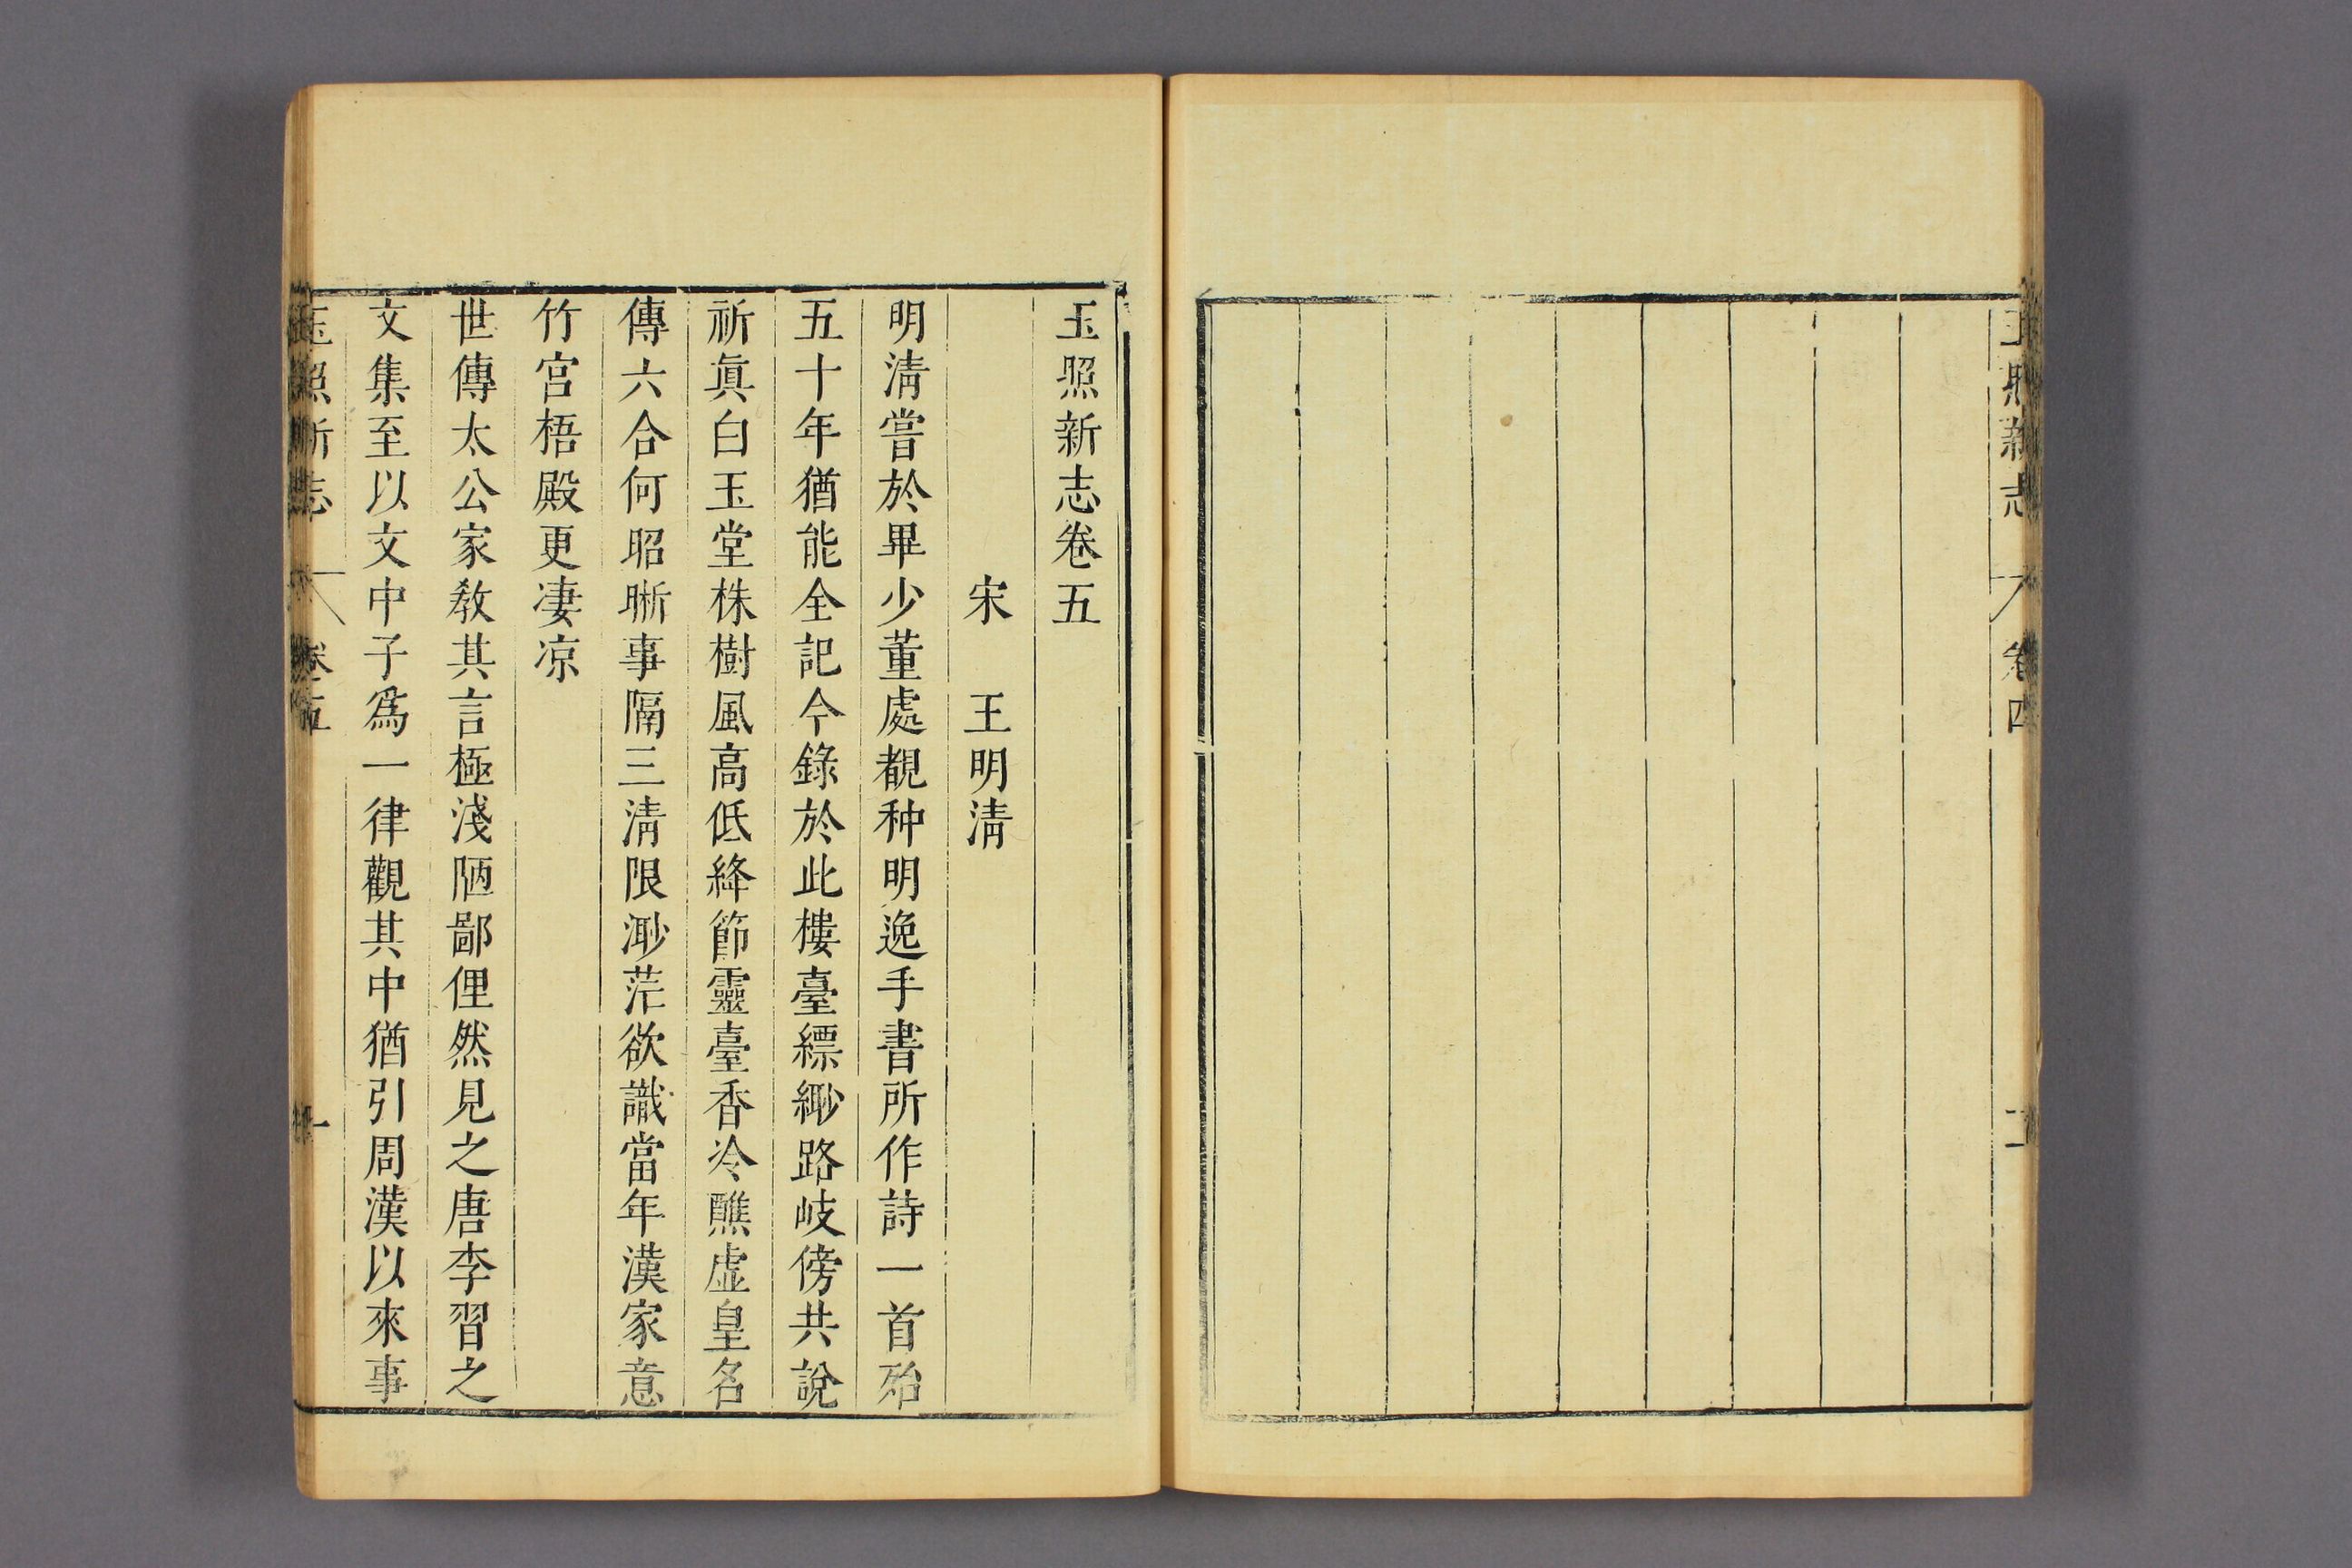 玉照新志
卷四
玉照新志卷五
宋　王明淸
明淸嘗於畢少董處覩种明逸手書所作詩一首殆
五十年猶能全記今錄於此樓臺縹緲路岐傍共說
祈眞白玉堂株樹風高低絳節靈臺香冷醮虛皇名
傳六合何昭晣事隔三淸限渺茫欲識當年漢家意
竹宮梧殿更凄凉
世傳太公家敎其言極淺陋鄙俚然見之唐李習之
文集至以文中子爲一律觀其中猶引周漢以來事
玉照新志
卷五
一